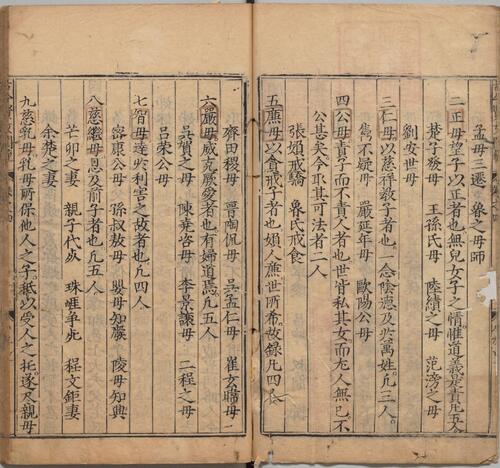 孟母三遷　魯之母師
二正母望子以正者也無兒女子之情惟道義是責凡五人
楚子發母　王孫氏母　陸績之母　范滂之母
劉安世母
三仁母以慈祥教子者也一念陰德及於萬姓凡三人
雋不疑母　嚴延年母　歐陽公母
四公母責子而不責人者也世皆私其女而尤人無已不
公甚矣今取其可法者二人
張　戒驕　魯氏戒食
五廉母以貪戒子者也婦人廉世所希故錄凡四人
齊田稷母　晉陶侃母　吳孟仁母　崔玄暐母
六嚴母威克厥愛者也有婦道焉凡五人
吳賀之母　陳堯咨母　李景讓母　二程之母
呂榮公母
七智母達於利害之故者也凡四人
密康公母　孫叔敖母　嬰母知廢　陵母知興
八慈繼母恩及前子者也凡五人
芒卯之妻　親子代死　珠崖爭死　程文鉅妻
余楚之妻
九慈乳母乳母所保他人之子祗以受人之托遂及親母